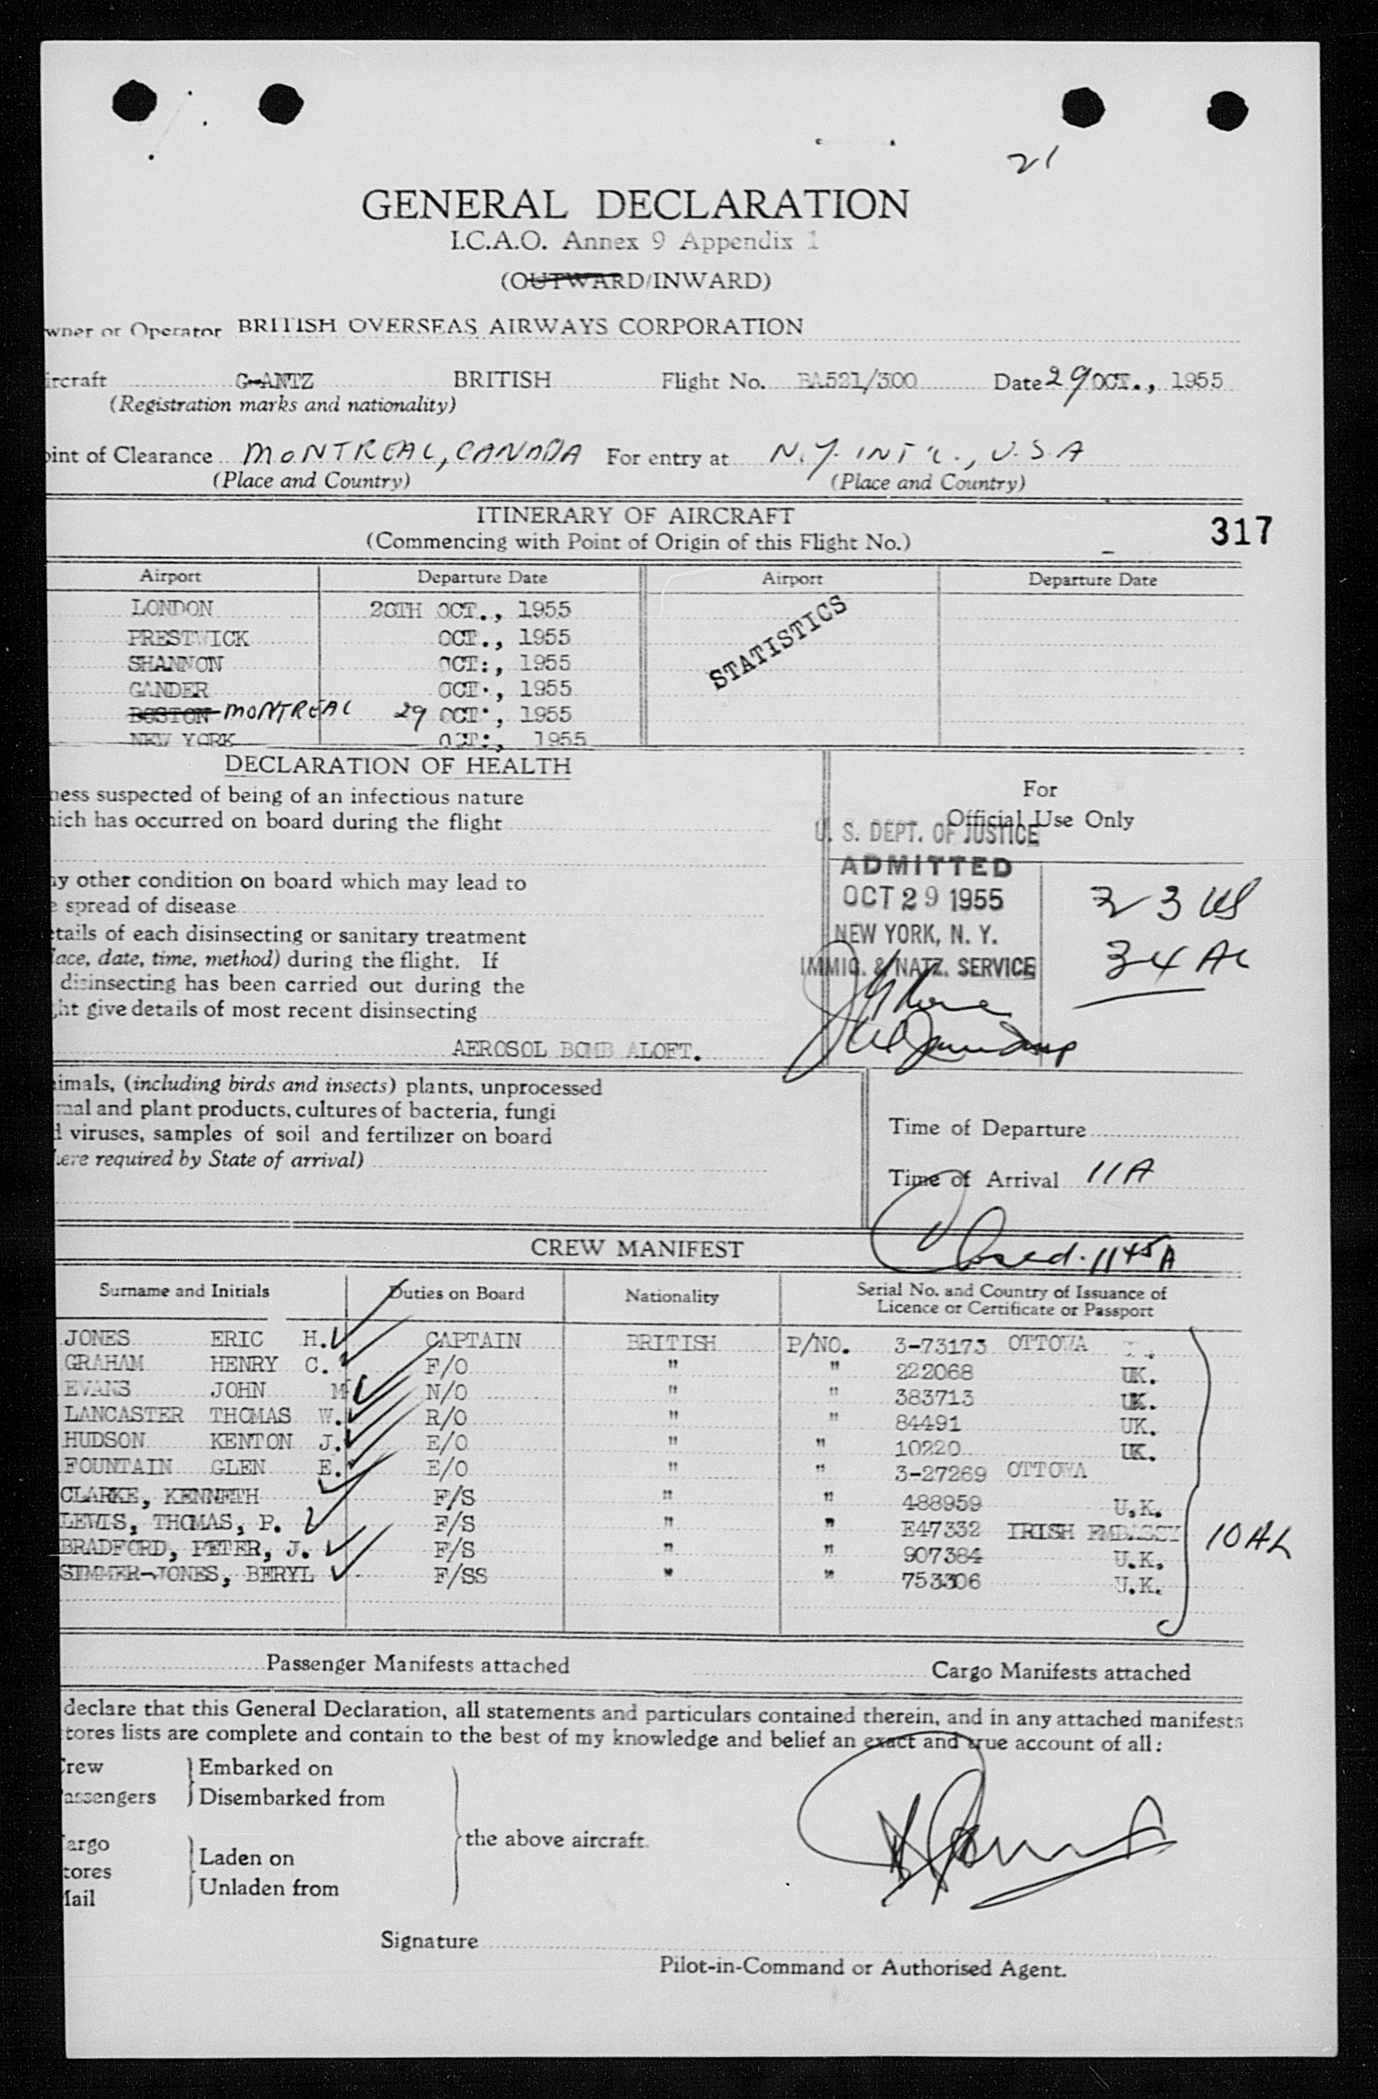 21
GENERAL DECLARATION
I.C.A.O. Annex 9 Appendix 1
(OUTWARD/INWARD)
wner or Operator BRITISH OVERSEAS AIRWAYS CORPORATION
ircraft G-ANTZ BRITISH Flight No. BA521/300 Date 29 OCT., 1955
(Registration marks and nationality)
oint of Clearance MONTREAL, CANADA For entry at N.Y. INT'L., U.S.A
(Place and Country) (Place and Country)
ITINERARY OF AIRCRAFT
(Commencing with Point of Origin of this Flight No.)
317
Airport Departure Date Airport Departure Date
LONDON 28TH OCT., 1955
PRESTWICK OCT., 1955
SHANNON OCT:, 1955
GANDER OCT., 1955
BOSTON MONTREAL 29 OCT., 1955
NEW YORK OCT:, 1955
STATISTICS
DECLARATION OF HEALTH
ness suspected of being of an infectious nature
hich has occurred on board during the flight
ny other condition on board which may lead to
e spread of disease
etails of each disinsecting or sanitary treatment
lace, date, time, method) during the flight. If
disinsecting has been carried out during the
ght give details of most recent disinsecting
AEROSOL BOMB ALOFT.
For
Official Use Only
U. S. DEPT. OF JUSTICE
ADMITTED
OCT 29 1955
NEW YORK, N. Y.
IMMIG. & NATZ. SERVICE
23 US
34 AL
imals, (including birds and insects) plants, unprocessed
mal and plant products, cultures of bacteria, fungi
d viruses, samples of soil and fertilizer on board
here required by State of arrival)
Time of Departure
Time of Arrival 11A
Closed. 1145A
CREW MANIFEST
Surname and Initials Duties on Board Nationality Serial No. and Country of Issuance of
Licence or Certificate or Passport
JONES ERIC H. CAPTAIN BRITISH P/NO. 3-73173 OTTOWA
GRAHAM HENRY C. F/O " " 222068 UK.
EVANS JOHN M N/O " " 383713 UK.
LANCASTER THOMAS W. R/O " " 84491 UK.
HUDSON KENTON J. E/O " " 10220 UK.
FOUNTAIN GLEN E. E/O " " 3-27269 OTTOWA
CLARKE, KENNETH F/S " " 488959 U.K.
LEWIS, THOMAS, P. F/S " " E47332 IRISH EMBASSY
BRADFORD, PETER, J. F/S " " 907384 U.K.
SIMMER-JONES, BERYL F/SS " " 753306 U.K.
10 AL
Passenger Manifests attached Cargo Manifests attached
declare that this General Declaration, all statements and particulars contained therein, and in any attached manifests
tores lists are complete and contain to the best of my knowledge and belief an exact and true account of all:
rew Embarked on
assengers Disembarked from
the above aircraft.
argo
Laden on
tores
Unladen from
Mail
Signature
Pilot-in-Command or Authorised Agent.